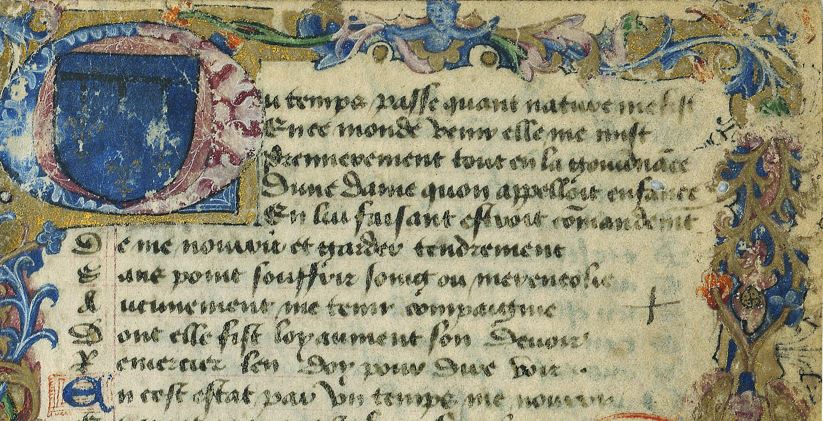 Ou temps passe quant nature me fist
En ce monde venir elle me mist
Premierement tout en la gouvnāce
Dune dame quon appelloit enfance
En lui faisant estroit cōmandemt
De me nourrir et garder tendrement
Sans point souffrir soing ou merencolie
Aucunement me tenir compaignie
Dont elle fist loyaument son devoir
Remercier len doy pour dire voir
En cest estat par vn temps me nourry